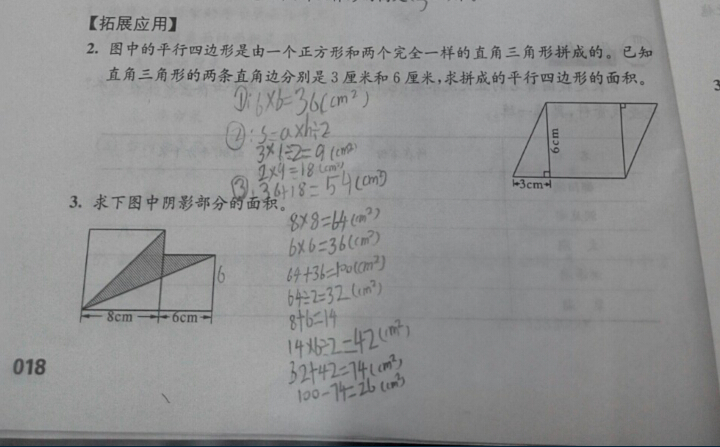 【拓展应用】
2. 图中的平行四边形是由一个正方形和两个完全一样的直角三角形拼成的。已知
直角三角形的两条直角边分别是3厘米和6厘米,求拼成的平行四边形的面积。
①:6×6=36(cm²)
②:S=a×h÷2
3×6÷2=9(cm²)
2×9=18(cm²)
③:36+18=54(cm²)
6cm
3cm
3. 求下图中阴影部分的面积。
8×8=64(cm²)
6×6=36(cm²)
64+36=100(cm²)
64÷2=32(cm²)
8+6=14
14×6÷2=42(cm²)
32+42=74(cm²)
100-74=26(cm²)
6
8cm
6cm
018